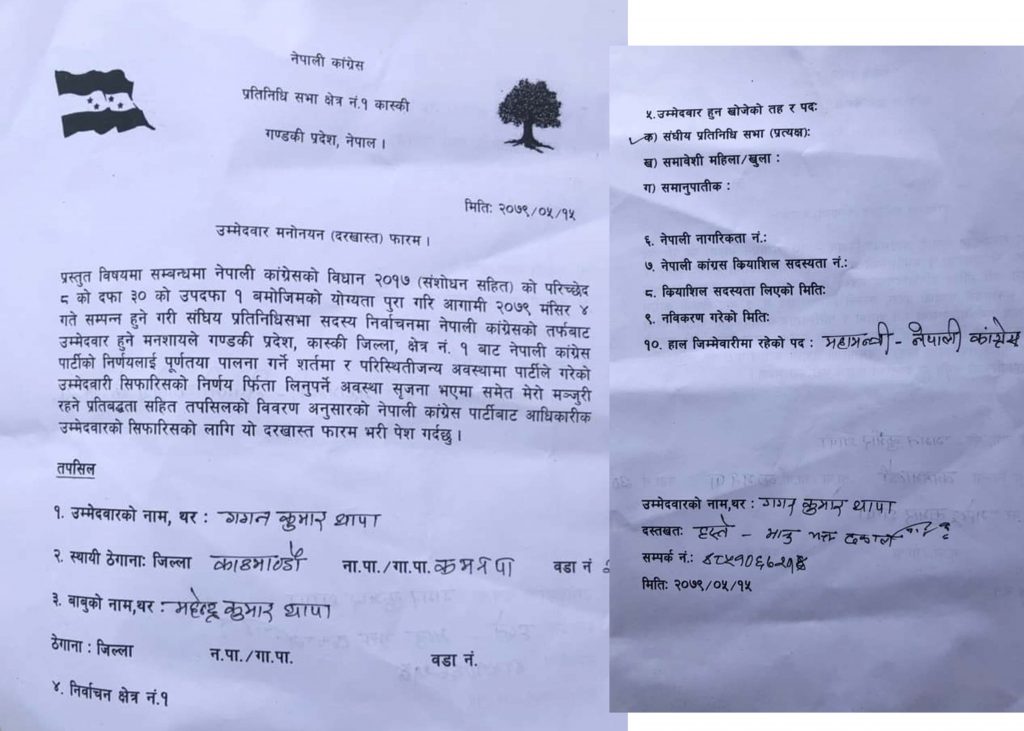 नेपाली कांग्रेस
प्रतिनिधि सभा क्षेत्र नं.१ कास्की
गण्डकी प्रदेश, नेपाल ।
मितिः २०७९/०५/१५
उम्मेदवार मनोनयन (दरखास्त) फारम ।
प्रस्तुत विषयमा सम्बन्धमा नेपाली कांग्रेसको विधान २०१७ (संशोधन सहित) को परिच्छेद
८ को दफा ३० को उपदफा १ बमोजिमको योग्यता पुरा गरि आगामी २०७९ मंसिर ४
गते सम्पन्न हुने गरी संघिय प्रतिनिधिसभा सदस्य निर्वाचनमा नेपाली कांग्रेसको तर्फबाट
उम्मेदवार हुने मनशायले गण्डकी प्रदेश, कास्की जिल्ला, क्षेत्र नं. १ बाट नेपाली कांग्रेस
पार्टीको निर्णयलाई पूर्णतया पालना गर्ने शर्तमा र परिस्थितीजन्य अवस्थामा पार्टीले गरेको
उम्मेदवारी सिफारिसको निर्णय फिर्ता लिनुपर्ने अवस्था सृजना भएमा समेत मेरो मञ्जुरी
रहने प्रतिबद्धता सहित तपसिलको विवरण अनुसारको नेपाली कांग्रेस पार्टीबाट आधिकारीक
उम्मेदवारको सिफारिसको लागि यो दरखास्त फारम भरी पेश गर्दछु ।
तपसिल
१. उम्मेदवारको नाम, थर : गगन कुमार थापा
२. स्थायी ठेगानाः जिल्ला काठमाण्डौ ना.पा./गा.पा. वडा नं
३. बाबुको नाम,थर : महेन्द्र कुमार थापा
ठेगाना : जिल्ला न.पा./गा.पा. वडा नं.
४. निर्वाचन क्षेत्र नं.१
५.उम्मेदवार हुन खोजेको तह र पदः
क) संघीय प्रतिनिधि सभा (प्रत्यक्ष)ः
ख) समावेशी महिला/खुला :
ग) समानुपातीक :
६. नेपाली नागरिकता नं.:
७. नेपाली कांग्रस कियाशिल सदस्यता नं.:
८. कियाशिल सदस्यता लिएको मितिः
९. नविकरण गरेको मितिः
१०. हाल जिम्मेवारीमा रहेको पद : महामन्त्री - नेपाली कांग्रेस
उम्मेदवारको नाम,थरः गगन कुमार थापा
दस्तखतः हस्ते -
सम्पर्क नं.:
मितिः २०७९/०५/१५